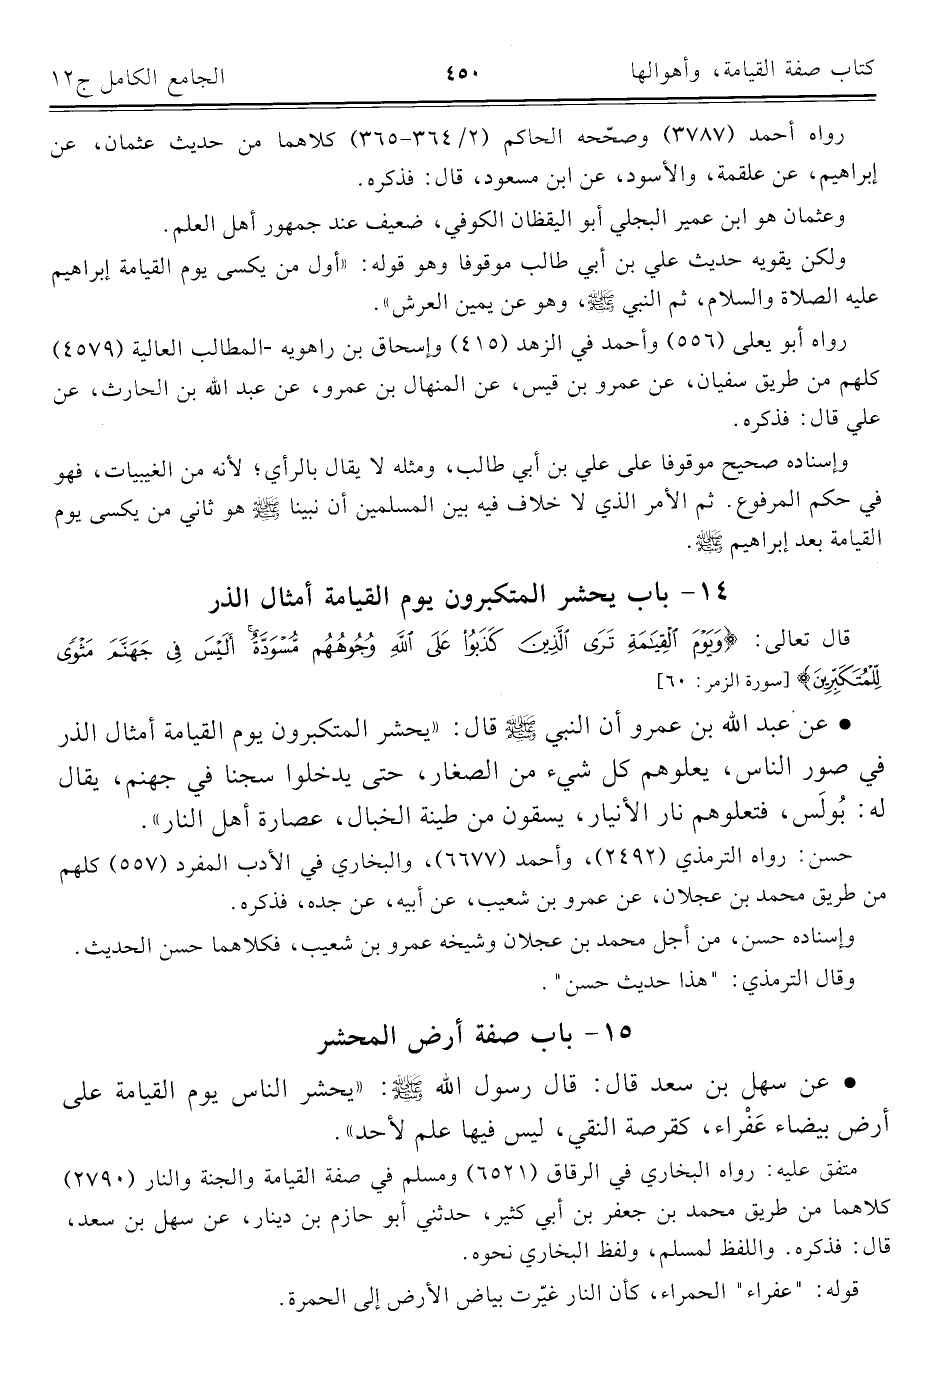 كتاب صفة القيامة، وأهوالها ٤٥٠ الجامع الكامل ج١٢
رواه أحمد (٣٧٨٧) وصحّحه الحاكم (٢/ ٣٦٤-٣٦٥) كلاهما من حديث عثمان، عن
إبراهيم، عن علقمة، والأسود، عن ابن مسعود، قال: فذكره.
وعثمان هو ابن عمير البجلي أبو اليقظان الكوفي، ضعيف عند جمهور أهل العلم.
ولكن يقويه حديث علي بن أبي طالب موقوفا وهو قوله: «أول من يكسى يوم القيامة إبراهيم
عليه الصلاة والسلام، ثم النبي ﷺ، وهو عن يمين العرش».
رواه أبو يعلى (٥٥٦) وأحمد في الزهد (٤١٥) وإسحاق بن راهويه -المطالب العالية (٤٥٧٩)
كلهم من طريق سفيان، عن عمرو بن قيس، عن المنهال بن عمرو، عن عبد الله بن الحارث، عن
علي قال: فذكره.
وإسناده صحيح موقوفا على علي بن أبي طالب، ومثله لا يقال بالرأي؛ لأنه من الغيبيات، فهو
في حكم المرفوع. ثم الأمر الذي لا خلاف فيه بين المسلمين أن نبينا ﷺ هو ثاني من يكسى يوم
القيامة بعد إبراهيم ﷺ.
١٤- باب يحشر المتكبرون يوم القيامة أمثال الذر
قال تعالى: ﴿وَيَوْمَ ٱلْقِيَٰمَةِ تَرَى ٱلَّذِينَ كَذَبُوا۟ عَلَى ٱللَّهِ وُجُوهُهُم مُّسْوَدَّةٌ ۚ أَلَيْسَ فِى جَهَنَّمَ مَثْوًى
لِّلْمُتَكَبِّرِينَ﴾ [سورة الزمر: ٦٠]
• عن عبد الله بن عمرو أن النبي ﷺ قال: «يحشر المتكبرون يوم القيامة أمثال الذر
في صور الناس، يعلوهم كل شيء من الصغار، حتى يدخلوا سجنا في جهنم، يقال
له: بُولَس، فتعلوهم نار الأنيار، يسقون من طينة الخبال، عصارة أهل النار».
حسن: رواه الترمذي (٢٤٩٢)، وأحمد (٦٦٧٧)، والبخاري في الأدب المفرد (٥٥٧) كلهم
من طريق محمد بن عجلان، عن عمرو بن شعيب، عن أبيه، عن جده، فذكره.
وإسناده حسن، من أجل محمد بن عجلان وشيخه عمرو بن شعيب، فكلاهما حسن الحديث.
وقال الترمذي: "هذا حديث حسن".
١٥- باب صفة أرض المحشر
• عن سهل بن سعد قال: قال رسول الله ﷺ: «يحشر الناس يوم القيامة على
أرض بيضاء عَفْراء، كقرصة النقي، ليس فيها علم لأحد».
متفق عليه: رواه البخاري في الرقاق (٦٥٢١) ومسلم في صفة القيامة والجنة والنار (٢٧٩٠)
كلاهما من طريق محمد بن جعفر بن أبي كثير، حدثني أبو حازم بن دينار، عن سهل بن سعد،
قال: فذكره. واللفظ لمسلم، ولفظ البخاري نحوه.
قوله: "عفراء" الحمراء، كأن النار غيّرت بياض الأرض إلى الحمرة.